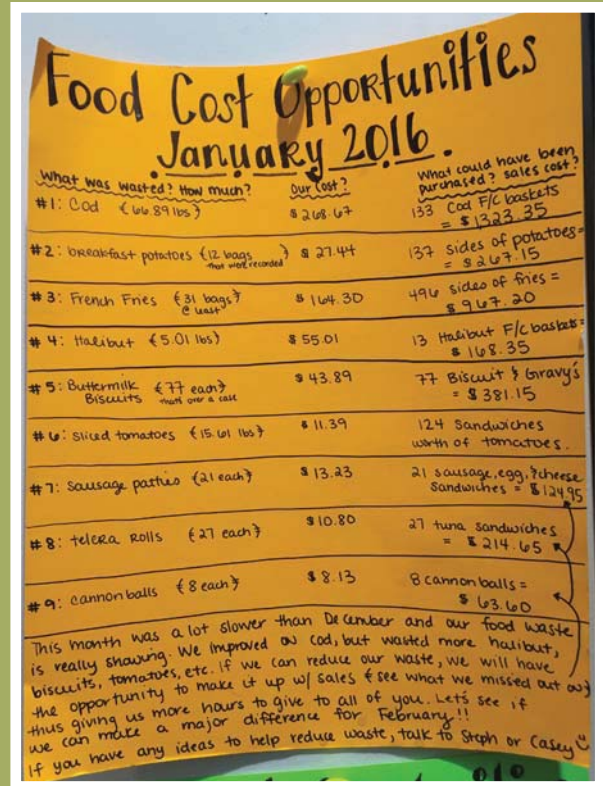 Food Cost Opportunities
January 2016.
What was wasted? How much? Our Cost? What could have been purchased? sales cost?
#1: Cod {66.89 lbs} $268.67 133 Cod F/C baskets
= $1323.35
#2: breakfast potatoes {12 bags that were recorded} $27.44 137 sides of potatoes=
= $267.15
#3: French Fries {31 bags} @ least $164.30 496 sides of fries =
$967.20
#4: Halibut {5.01 lbs} $55.01 13 Halibut F/C baskets=
$168.35
#5: Buttermilk Biscuits {77 each} that's over a case $43.89 77 Biscuit & Gravy's
= $381.15
#6: sliced tomatoes {15.61 lbs} $11.39 124 sandwiches
worth of tomatoes.
#7: sausage patties {21 each} $13.23 21 sausage, egg, & cheese
sandwiches = $124.95
#8: telera rolls {27 each} $10.80 27 tuna sandwiches
= $214.65
#9: cannonballs {8 each} $8.13 8 cannonballs =
$63.60
This month was a lot slower than December and our food waste
is really showing. We improved on cod, but wasted more halibut,
biscuits, tomatoes, etc. If we can reduce our waste, we will have
the opportunity to make it up w/ sales {see what we missed out on}
thus giving us more hours to give to all of you. Let's see if
we can make a major difference for February!!
If you have any ideas to help reduce waste, talk to Steph or Casey